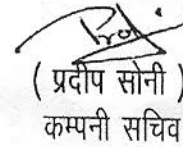 ( प्रदीप सोनी )
कम्पनी सचिव